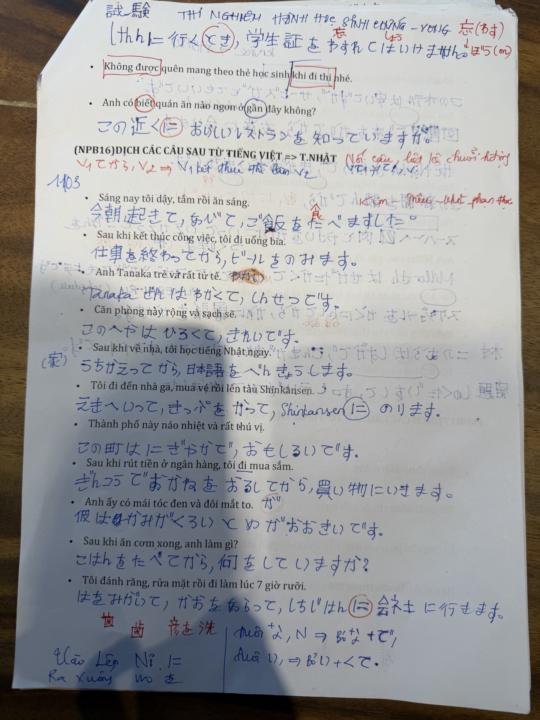 試験 THÍ NGHIỆM HÀNH HỌC SINH 忘(わす)
しけんに行くとき, 学生証をわすれてはいけません。
• Không được quên mang theo thẻ học sinh khi đi thi nhé.
• Anh có biết quán ăn nào ngon ở gần đây không?
この近くに おいしいレストランを知っていますか。
(NPB16)DỊCH CÁC CÂU SAU TỪ TIẾNG VIỆT => T.NHẬT
V₁てから, V₂ ⇒ V₁ kết thúc thì làm V₂
1103
• Sáng nay tôi dậy, tắm rồi ăn sáng.
今朝起きて, あびて, ご飯をたべました。
食
• Sau khi kết thúc công việc, tôi đi uống bia.
仕事を終わってから, ビールをのみます。
• Anh Tanaka trẻ và rất tử tế.
Tanaka さんはわかくて, しんせつです。
• Căn phòng này rộng và sạch sẽ.
このへやは ひろくて, きれいです。
• Sau khi về nhà, tôi học tiếng Nhật ngay.
(家) うちかえってから, 日本語をべんきょうします。
• Tôi đi đến nhà ga, mua vé rồi lên tàu Shinkansen.
えきへいって, きっぷをかって, Shinkansen に のります。
• Thành phố này náo nhiệt và rất thú vị.
この町はにぎやかで, おもしろいです。
• Sau khi rút tiền ở ngân hàng, tôi đi mua sắm.
ぎんこうでおかねをおろしてから, 買い物にいきます。
• Anh ấy có mái tóc đen và đôi mắt to.
が
彼はかみがくろいとめがおおきいです。
• Sau khi ăn cơm xong, anh làm gì?
ごはんをたべてから, 何をしていますか?
• Tôi đánh răng, rửa mặt rồi đi làm lúc 7 giờ rưỡi.
はをみがいて, かおをあらって, しちじはんに 会社に行きます。
歯 歯 洗
Vào Lên Ni に
Ra Xuống wo を
đuôi な, N ⇒ bỏ な + で,
đuôi い, ⇒ bỏ い + くて.